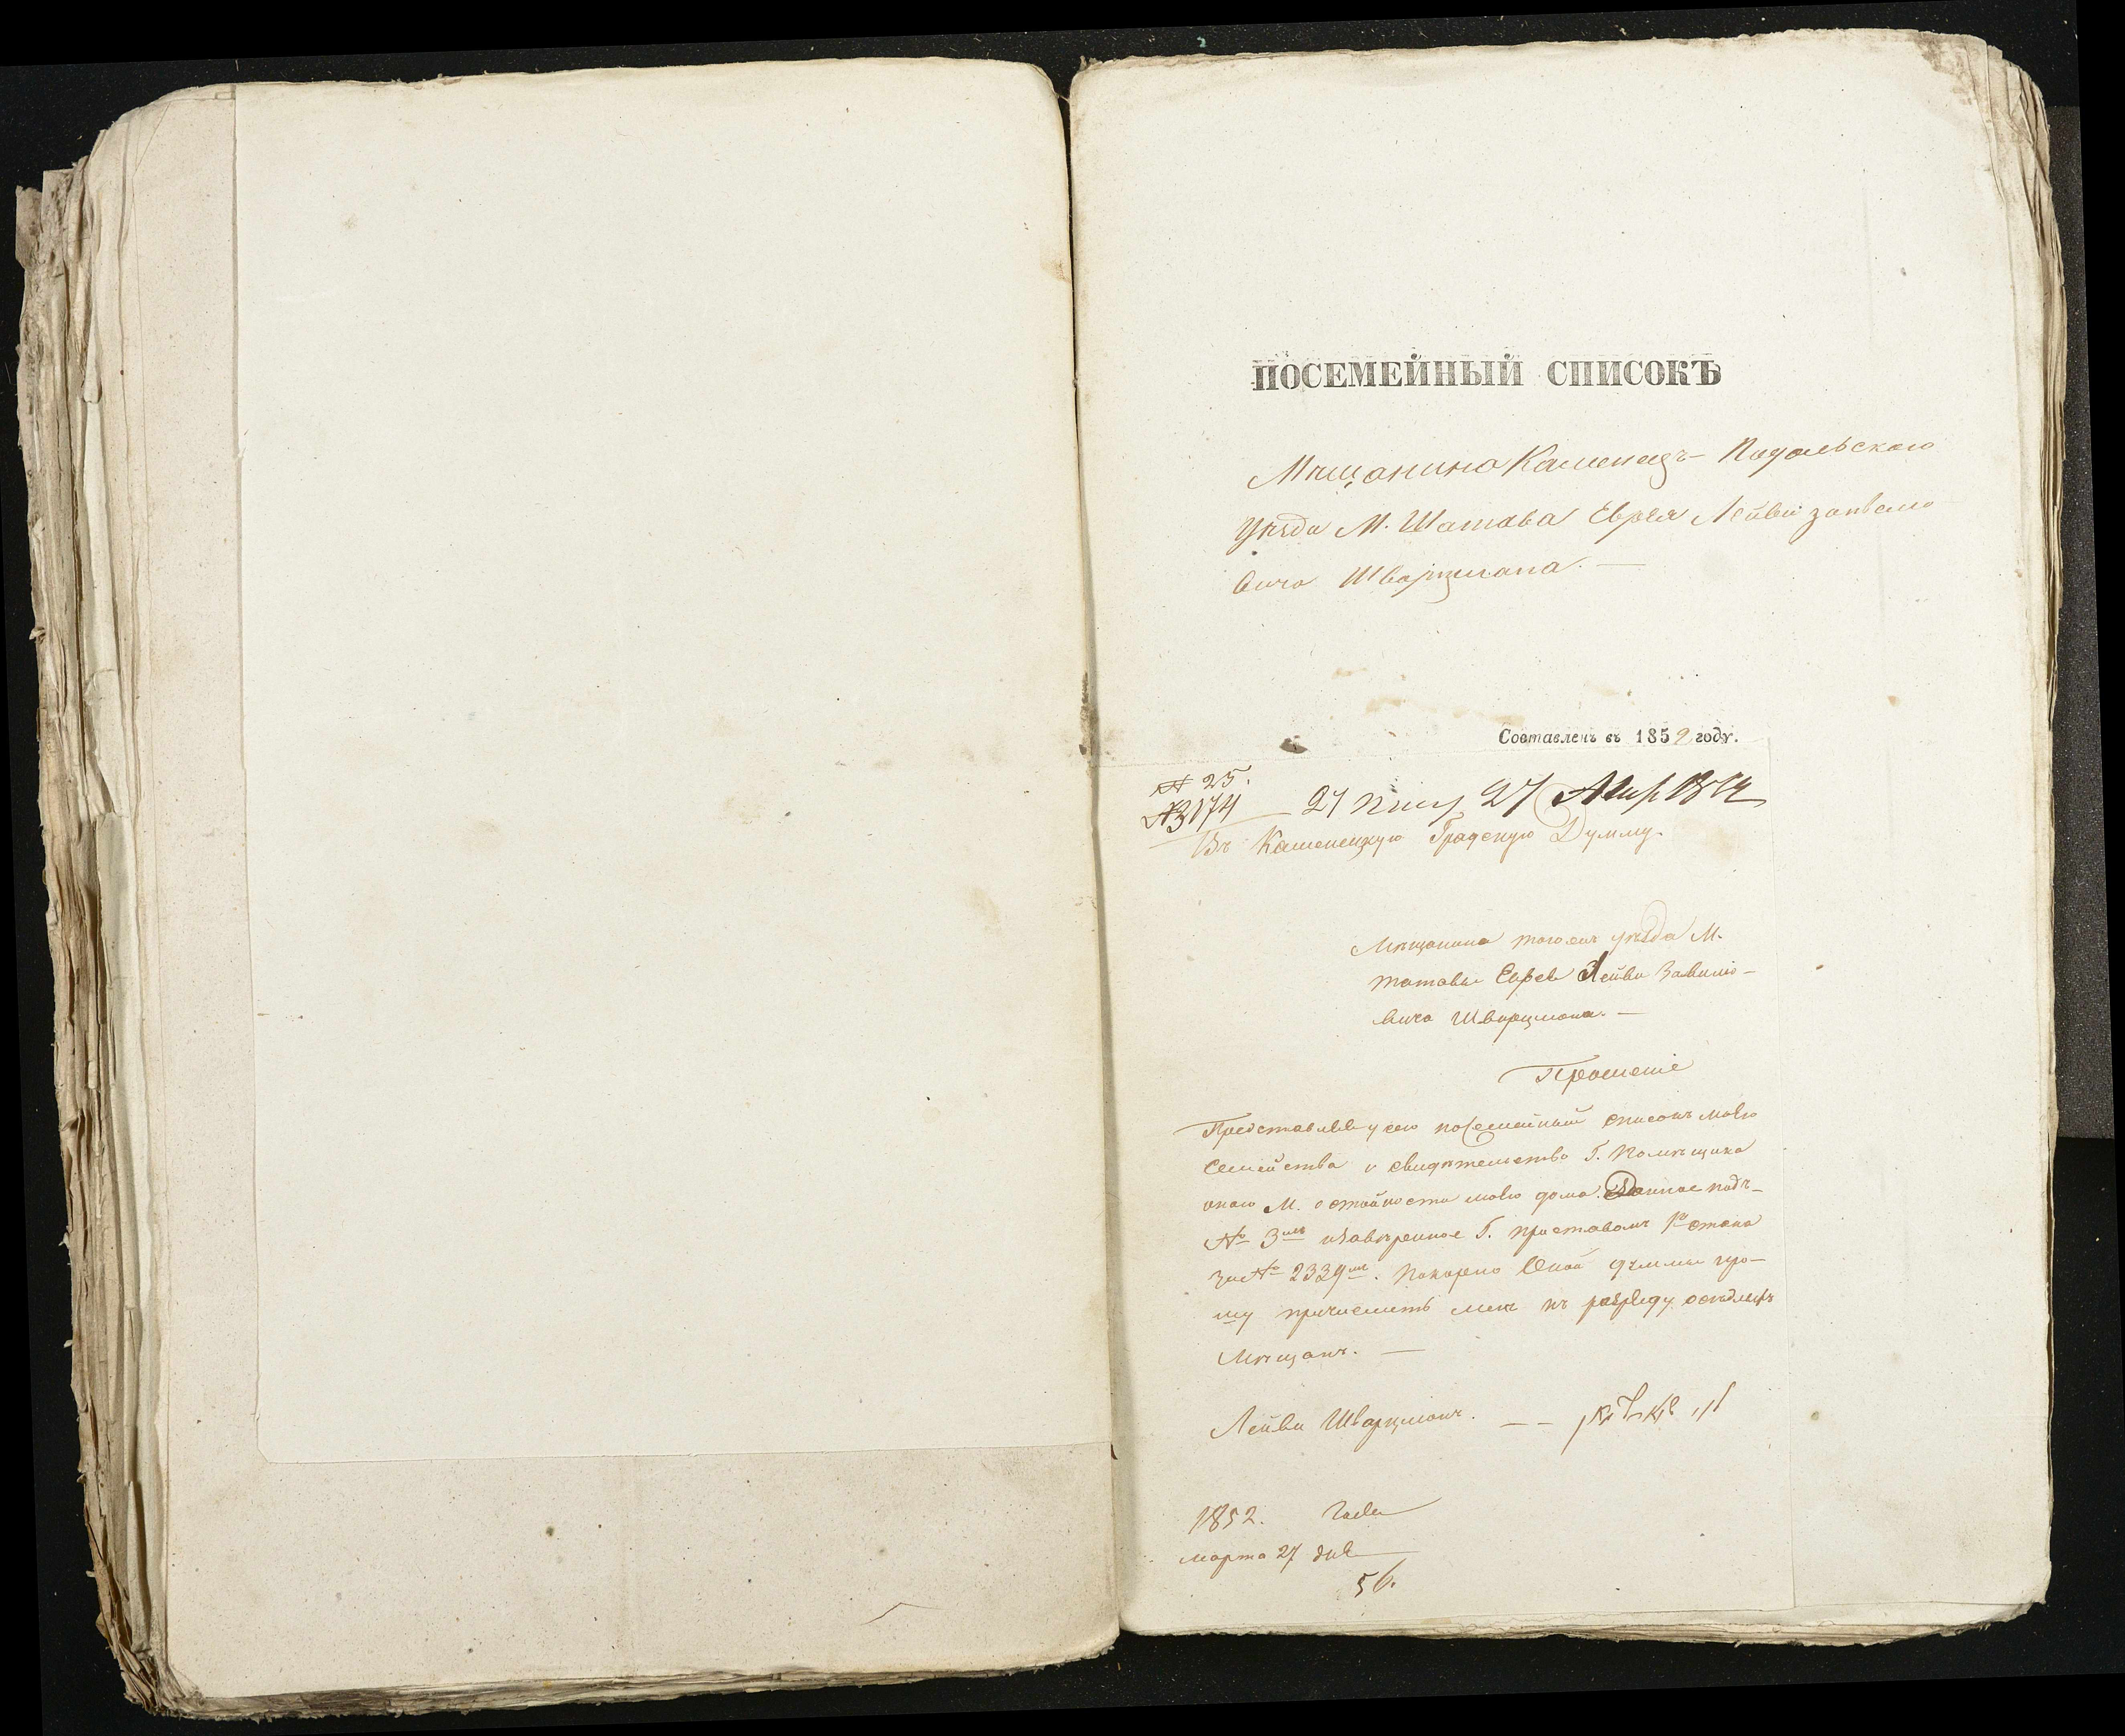 ПОСЕМЕЙНЫЙ СПИСОКЪ
Мѣщанина Каменецъ-Подольскаго
Уѣзда М. Шатава Еврея Лейви Завелио
вича Шварцмана. —
Составленъ въ 1852 году.
№ 25.
№ 3174 — 27 Мар. 1852
Въ Каменецкую Градскую Думму.
Мѣщанина того жъ уѣзда М.
Шатавы Еврея Лейви Завилио-
вича Шварцмана. —
Прошеніе
Представляя у сего посемейный списокъ моего
Семейства и свидѣтельство Г. Помѣщика
онаго М. о стойности моего дома. Данное подъ-
№ 3мъ и завѣренное Г. приставомъ 1го стана
за № 2339мъ. Покорно Оной думмы про-
шу причислить мене къ разряду осѣдлыхъ
Мѣщанъ. —
Лейви Шварцманъ. — —
1852. Года
марта 27 дня
56.